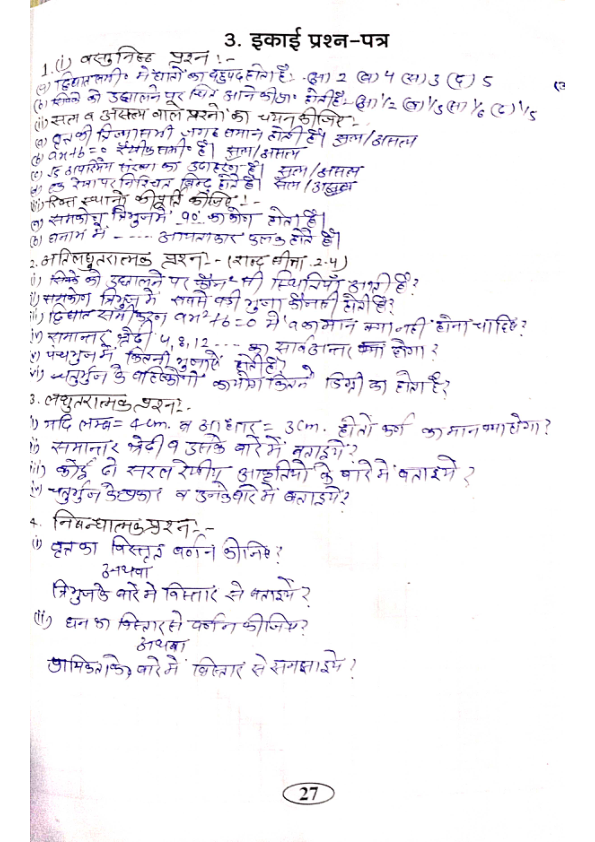 3. इकाई प्रश्न-पत्र
1.(i) वस्तुनिष्ठ प्रश्न :-
(a) द्विघात समी० में घातों का बहुपद होता है :- (अ) 2 (ब) 4 (स) 3 (द) 5
(b) सिक्के को उछालने पर चित आने की प्रा० होती है :- (अ) 1/2 (ब) 1/3 (स) 1/6 (द) 1/5
(ii) सत्य व असत्य वाले प्रश्नों का चयन कीजिए :-
(a) वृत्त की त्रिज्या सभी जगह समान होती है। सत्य/असत्य
(b) ax+b=0 रैखीक समी० है। सत्य/असत्य
(c) √5 अपरिमेय संख्या का उदाहरण है। सत्य/असत्य
(d) रेखा पर निश्चित बिन्दु होते है। सत्य/असत्य
(iii) रिक्त स्थानों की पूर्ति कीजिए :-
(a) समकोण त्रिभुज में 90° का कोण होता है।
(b) घनाभ में ----- आयताकार फलक होते है।
2. अतिलघुतरात्मक प्रश्न:- (शब्द सीमा 2-4)
(i) सिक्के को उछालने पर कौन-सी स्थितियाँ आती है?
(ii) समकोण त्रिभुज में सबसे बड़ी भुजा कौनसी होती है?
(iii) द्विघात समीकरण ax²+b=0 में a का मान क्या नहीं होना चाहिए?
(iv) समान्तर श्रेढी 4, 8, 12 --- का सार्वअन्तर क्या होगा?
(v) पंचभुज में कितनी भुजाएँ होती है?
(vi) चतुर्भुज के बहिष्कोणों का योग कितने डिग्री का होता है?
3. लघुतरात्मक प्रश्न:-
(i) यदि लम्ब = 4cm. व आधार = 3cm. हो तो कर्ण का मान क्या होगा?
(ii) समान्तर श्रेढी व उसके बारे में बताइये?
(iii) कोई दो सरल रेखीय आकृतियों के बारे में बताइये?
(iv) चतुर्भुज के प्रकार व उनके बारे में बताइये?
4. निबन्धात्मक प्रश्न:-
(i) वृत्त का विस्तृत वर्णन कीजिए?
अथवा
त्रिभुज के बारे में विस्तार से बताइये?
(ii) घन का विस्तार से वर्णन कीजिए?
अथवा
के बारे में विस्तार से समझाइये?
27